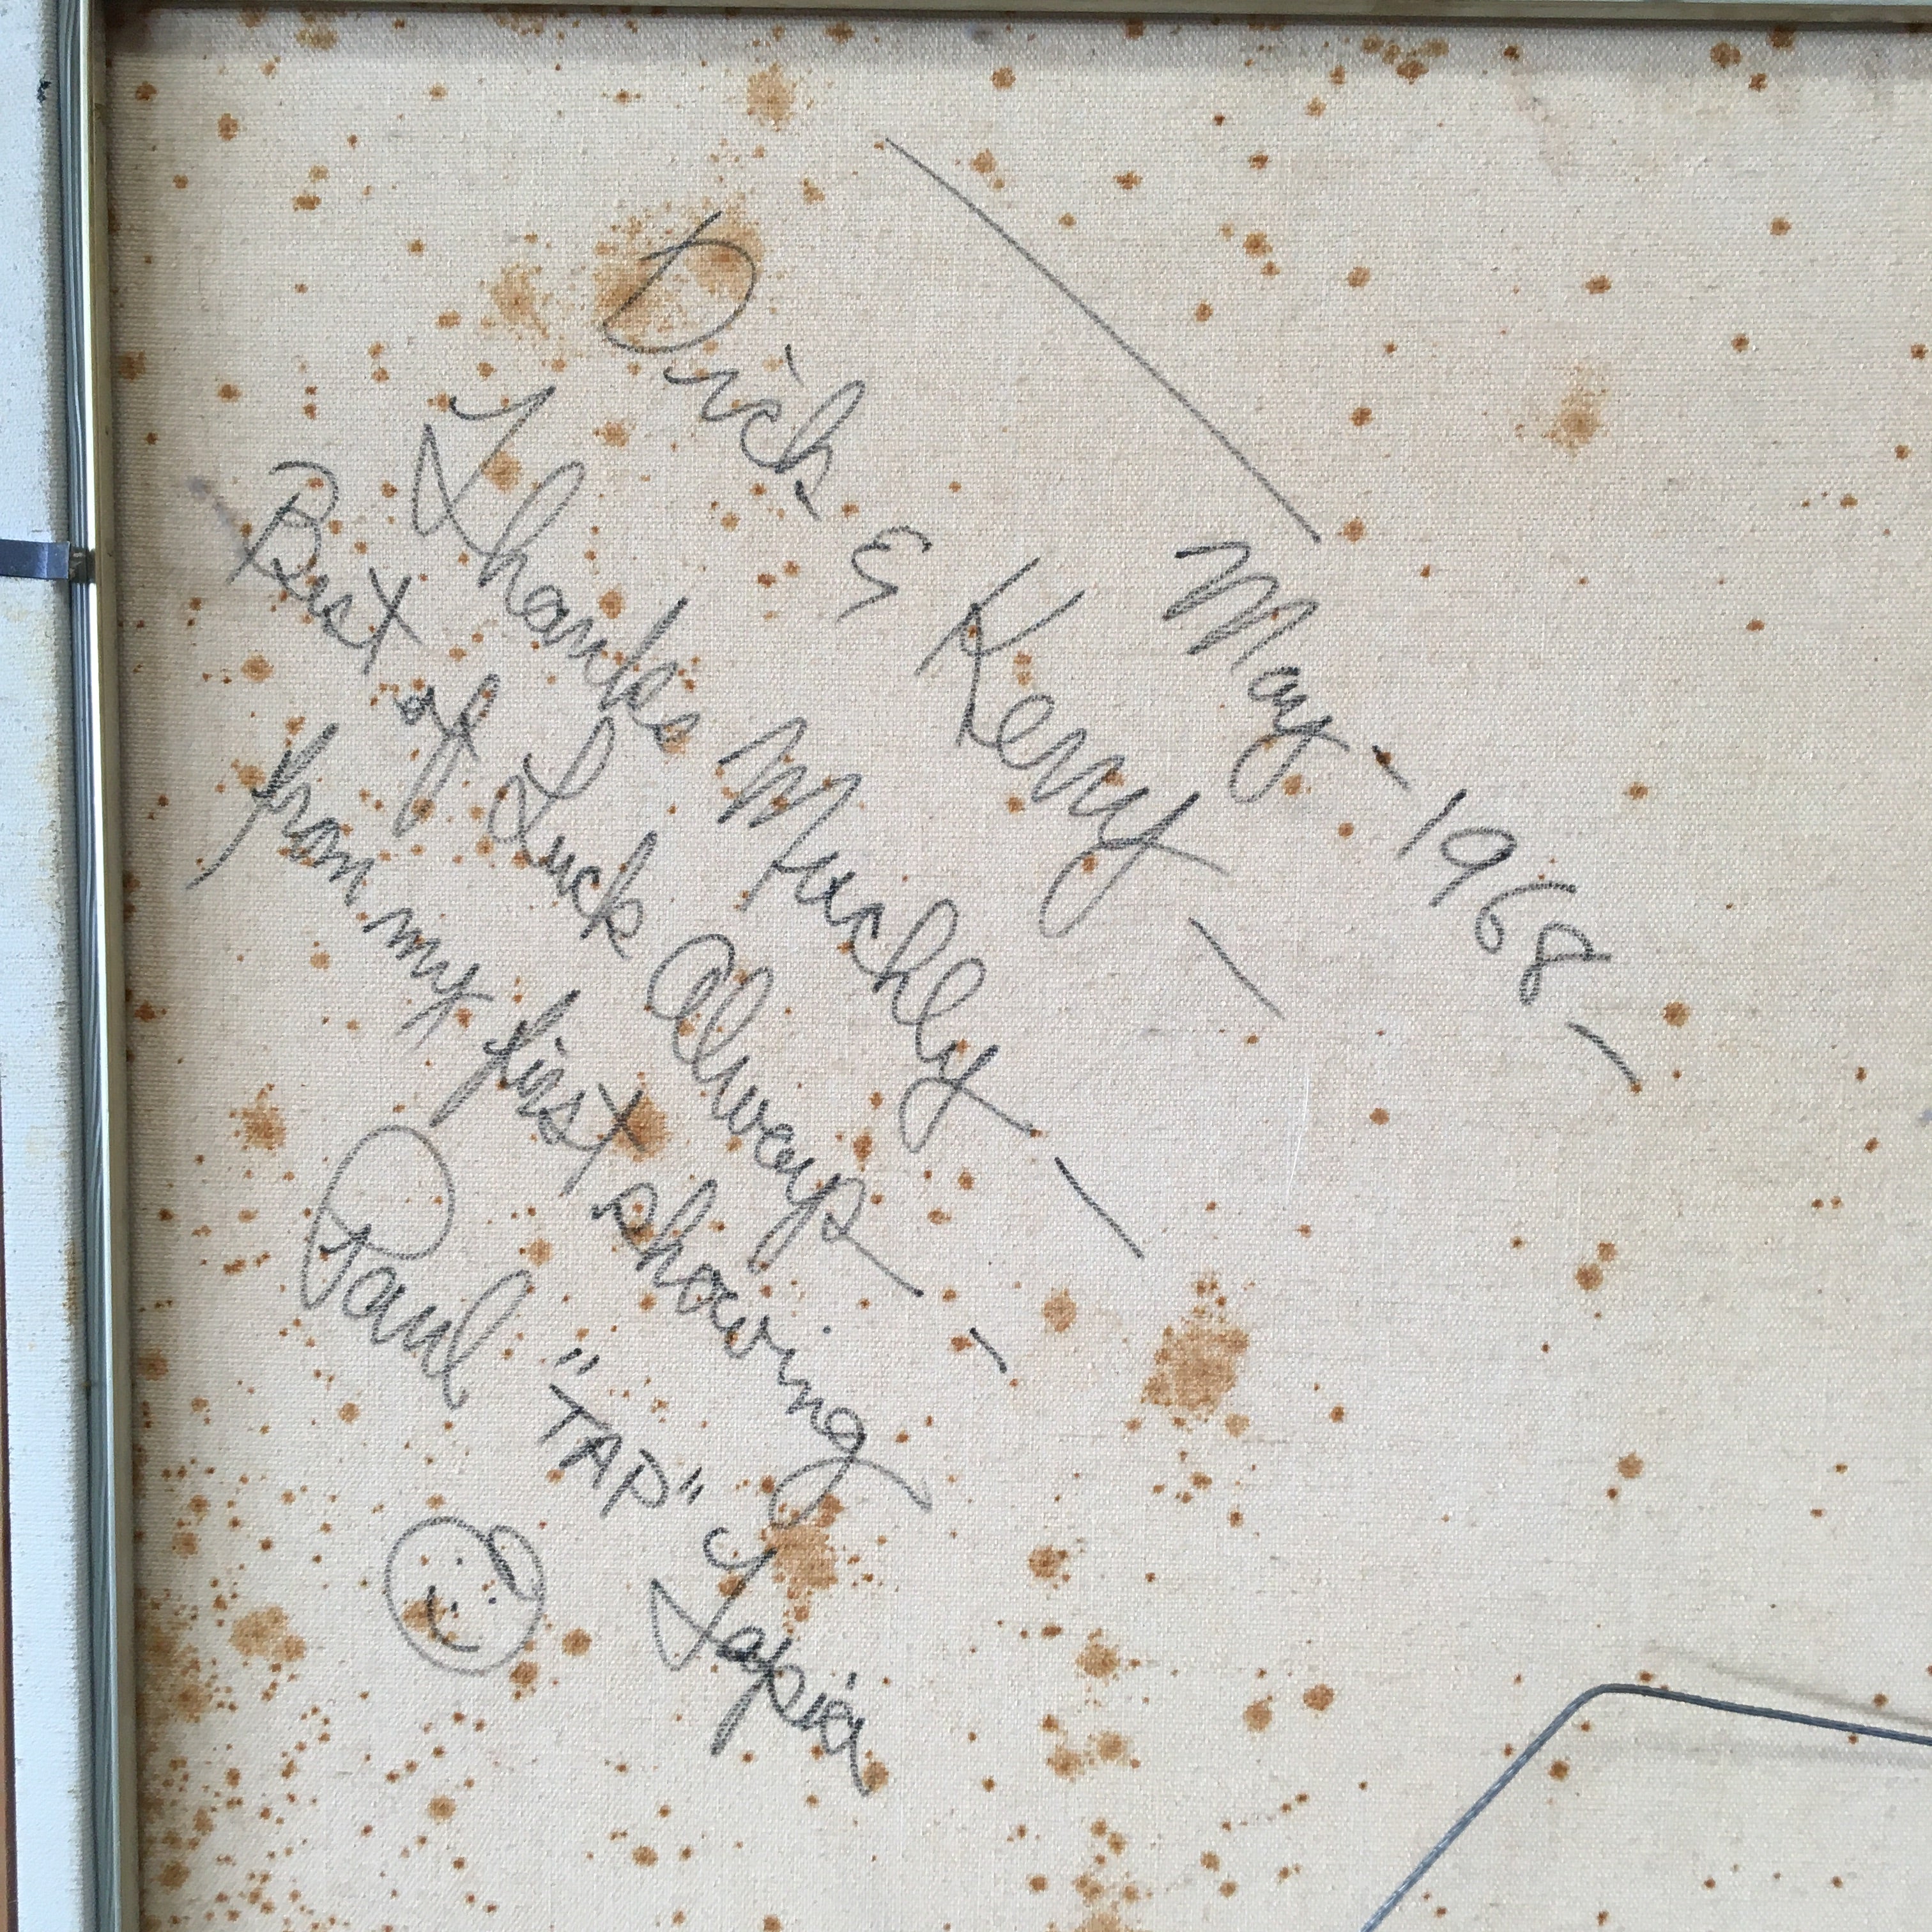 May - 1968 -
Dick & Kerry -
Thanks Muchly -
Best of Luck Always -
from my first showing
Paul "TAP" Tapia